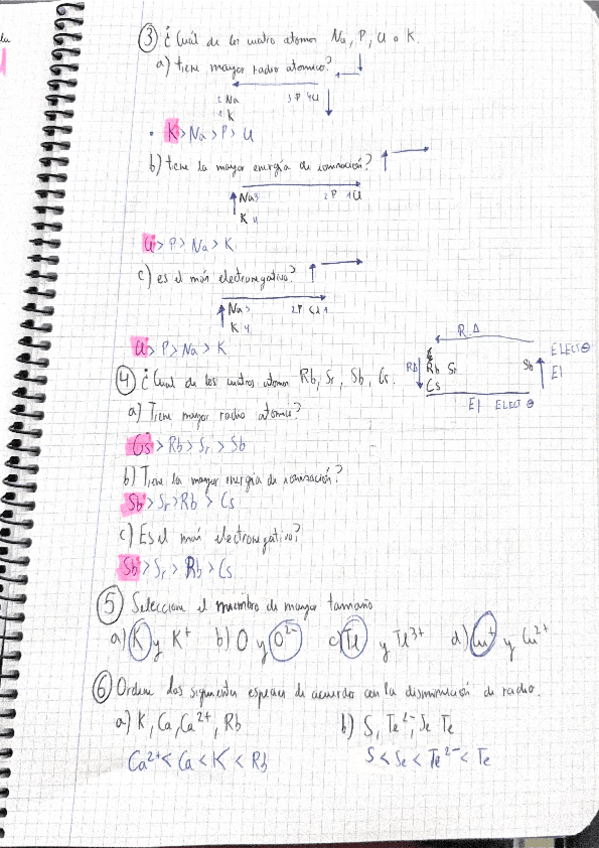 ③ ¿Cuál de los cuatro átomos Na, P, Cl o K.
a) tiene mayor radio atómico?
2 Na 3 P 4 Cl
1 K
• K > Na > P > Cl
b) tiene la mayor energía de ionización?
Na 3 2 P 1 Cl
K 4
Cl > P > Na > K
c) es el más electronegativo?
Na 3 2 P Cl 1
K 4
Cl > P > Na > K
R.A
④ ¿Cual de los cuatros atomos Rb, Sr, Sb, Cs.
Rb Sr Sb
Cs
ELECT⊖
EI
EI ELECT ⊖
a) Tiene mayor radio atomico?
Cs > Rb > Sr > Sb
b) Tiene la mayor energia de ionización?
Sb > Sr > Rb > Cs
c) Es el más electronegativo?
Sb > Sr > Rb > Cs
⑤ Seleccione el miembro de mayor tamaño
a) K y K+ b) O y O2- c) Tl y Tl3+ d) Cu+ y Cu2+
⑥ Ordene las siguientes especies de acuerdo con la disminución de radio.
a) K, Ca, Ca2+, Rb b) S, Te2-, Se Te
Ca2+ < Ca < K < Rb S < Se < Te2- < Te